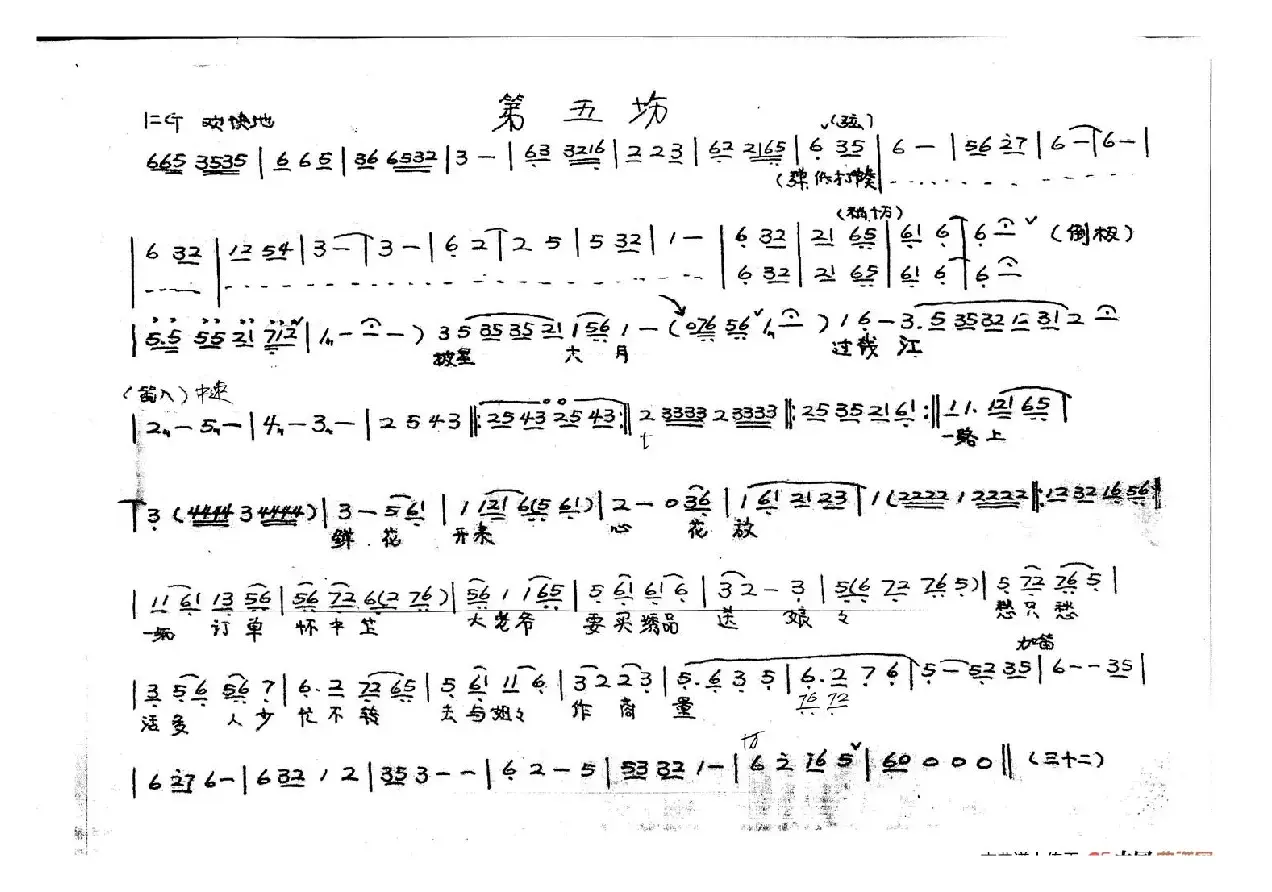 第五场
1=G 欢快地
(弦)
665 3535 | 6 65 | 36 6532 | 3 - | 63 3216 | 2 2 3 | 62 2165 | 6 35 | 6 - | 56 27 | 6 - | 6 - |
6 32 | 12 54 | 3 - | 3 - | 6 2 | 2 5 | 5 32 | 1 - | 6 32 | 21 65 | 61 6 | 6 - (倒板)
6 32 | 21 65 | 61 6 | 6 -
| 5.5 55 21 712 | 1 - - ) 3 5 35 35 21 1 56 1 - ( 076 56 1 - ) 1 6 - 3. 5 35 32 12 31 2 -
披星 大 月 过钱 江
(笛入) 中速
| 2 - 5 - | 4 - 3 - | 2 5 4 3 ‖: 25 43 25 43 :‖ 2 3333 2 3333 ‖: 25 35 21 61 :‖ 1 1. 121 65
一路 上
3 (4444 3 4444) | 3 - 5 61 | 1 121 6(5 61) | 2 - 0 36 | 1 61 21 23 | 1 (2222 1 2222 ‖: 12 32 16 56 :‖
鲜 花 开来 心 花 放
| 11 61 13 56 | 56 72 6(2 76) | 56 1 1 65 | 5 61 61 6 | 3 2 - 3 | 5(6 72 76 5) | 5 72 76 5 |
订 单 怀中 大 老爷 要买 绣品 送 娘々 愁只愁
加笛
| 3 56 56 7 | 6. 2 72 65 | 5 61 11 6 | 3 2 2 3 | 5. 6 3 5 | 6. 2 7 6 | 5 - 52 35 | 6 - - 35 |
76 72
活多 人少 忙不转 去与姐々 作 商 量
| 6 27 6 - | 6 32 1 2 | 35 3 - - | 6 2 - 5 | 53 32 1 - | 6 2 76 5 | 60 0 0 0 ‖ (三十二)